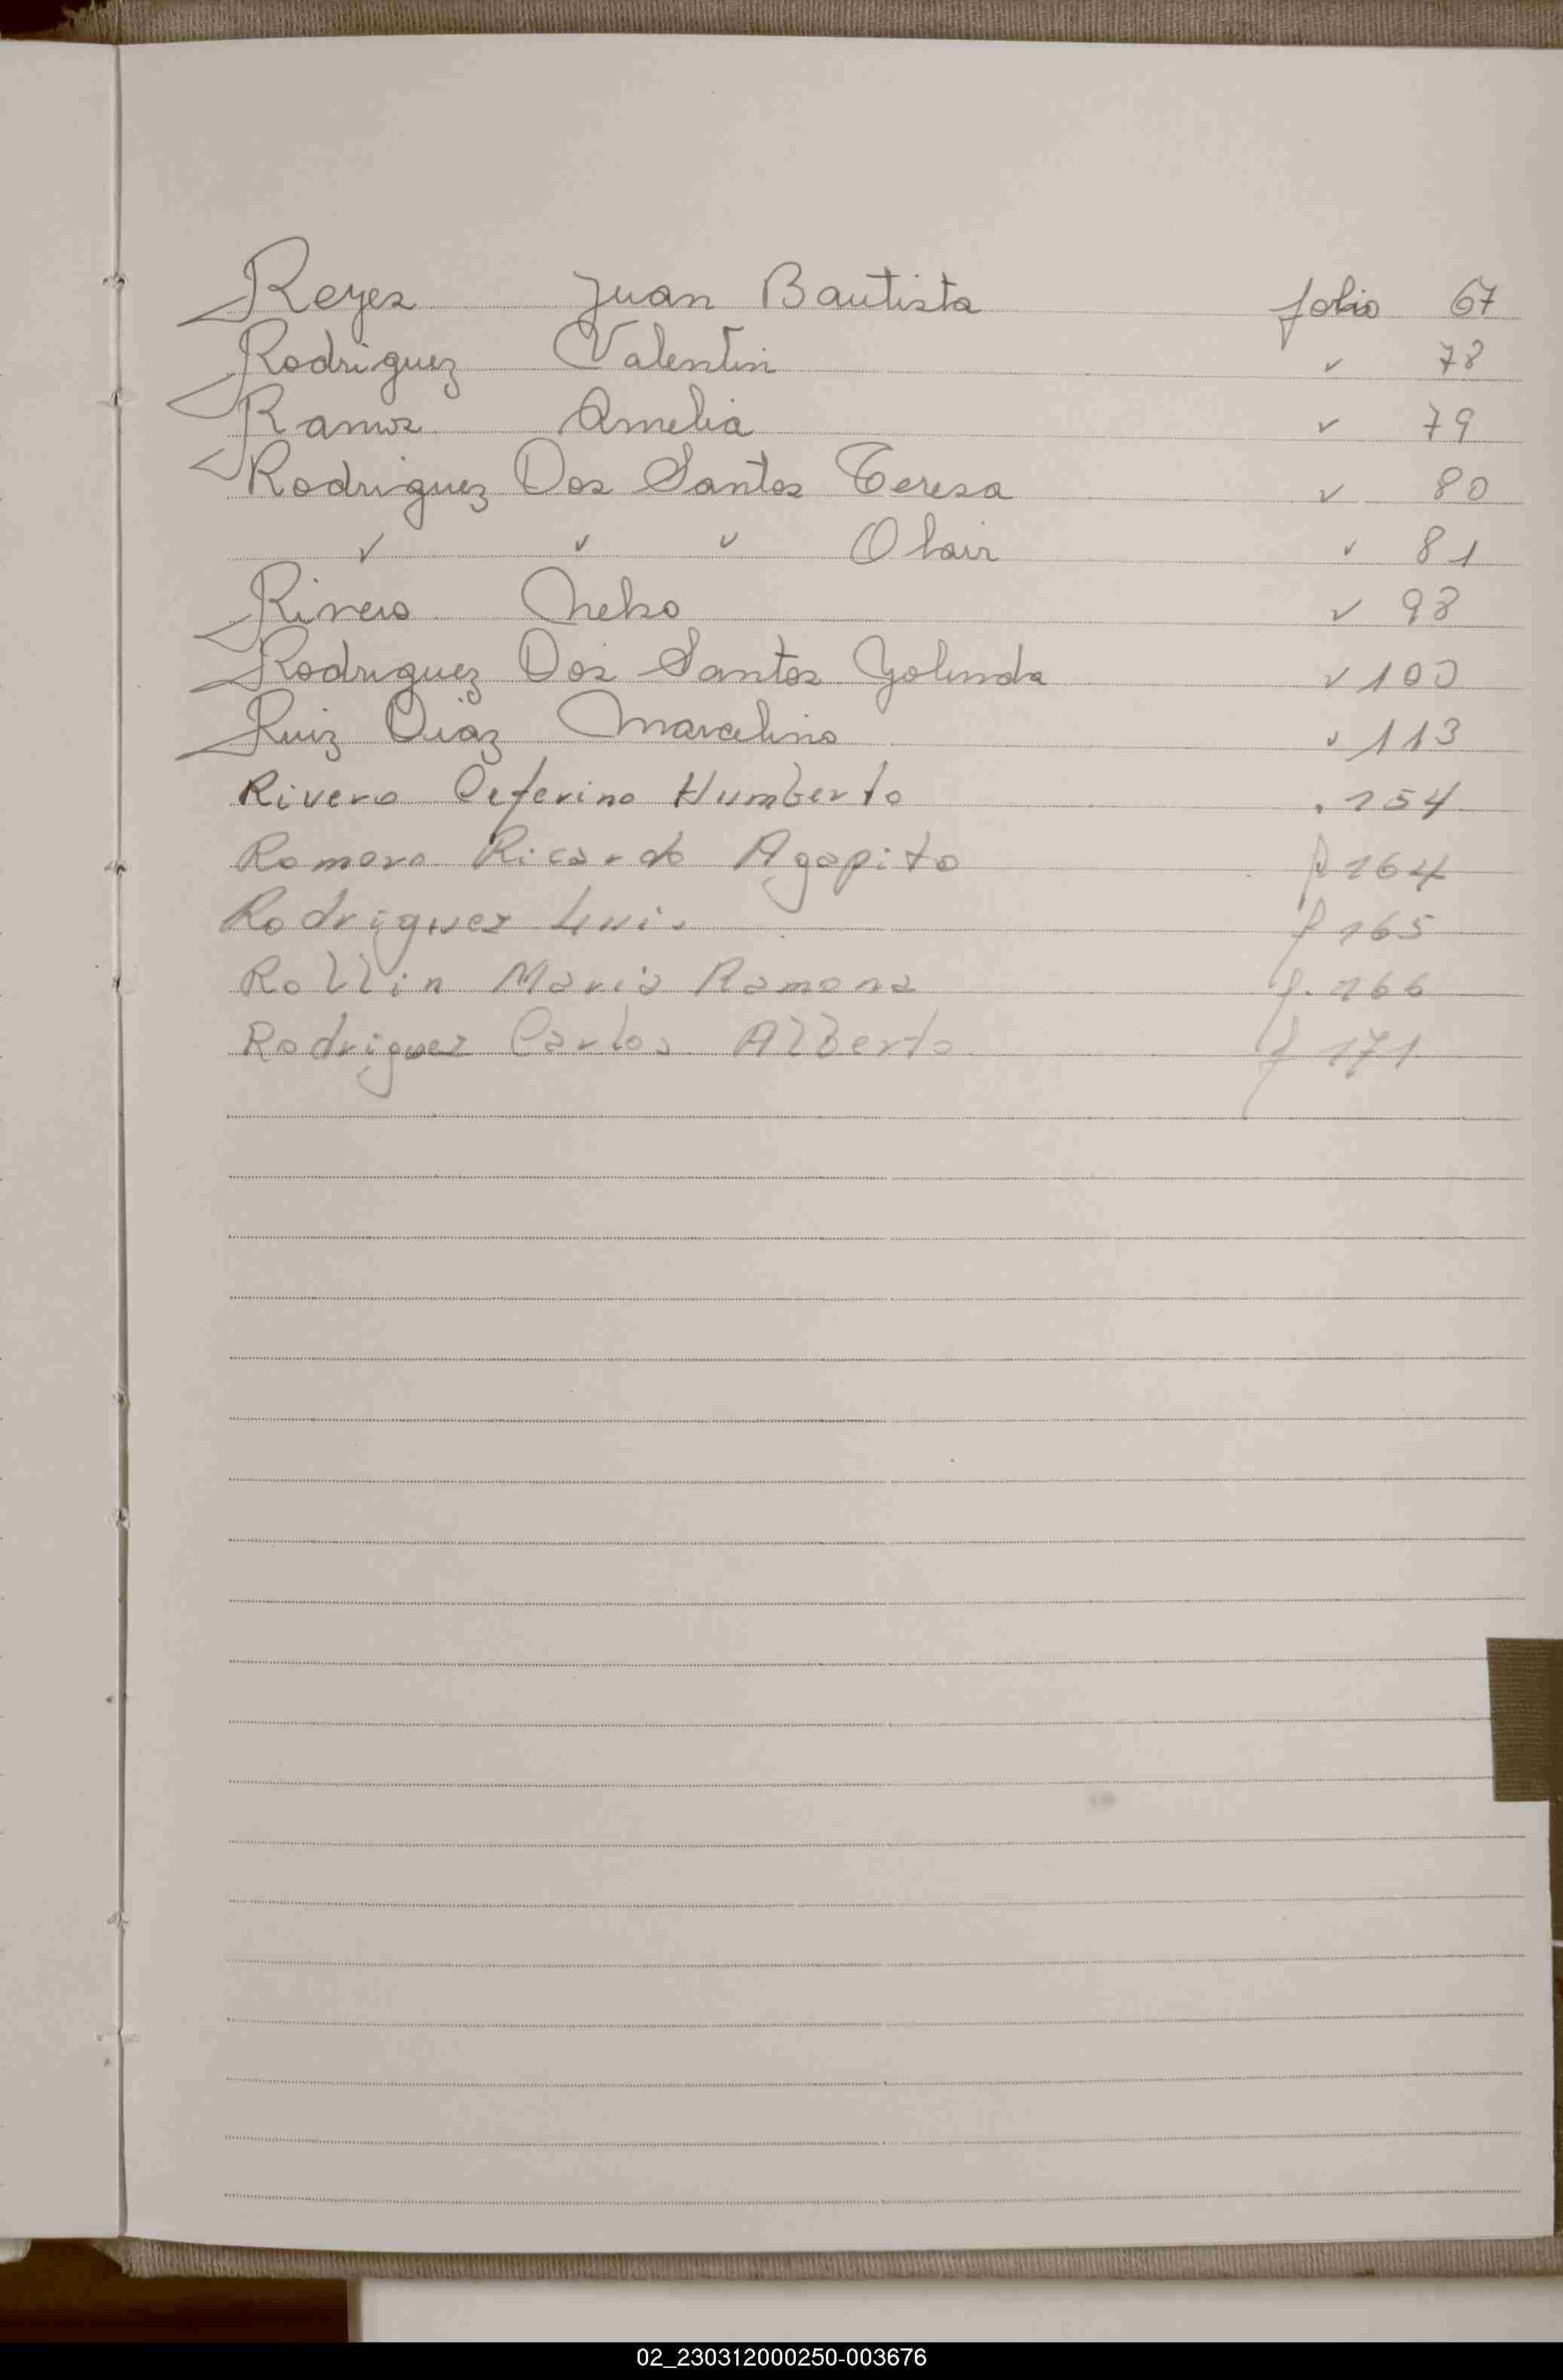 Reyes Juan Bautista folio 67
Rodriguez Valentin " 78
Ramos Amelia " 79
Rodriguez Dos Santos Teresa " 80
" " " Olair " 81
Rivero Nelso " 98
Rodriguez Dos Santos Yolinda " 100
Ruiz Diaz Marcelino " 113
Rivero Ceferino Humberto " 154
Romero Ricardo Agapito f 164
Rodriguez Luis f 165
Rollin Maria Ramona f. 166
Rodriguez Carlos Alberto f 171
02_230312000250-003676